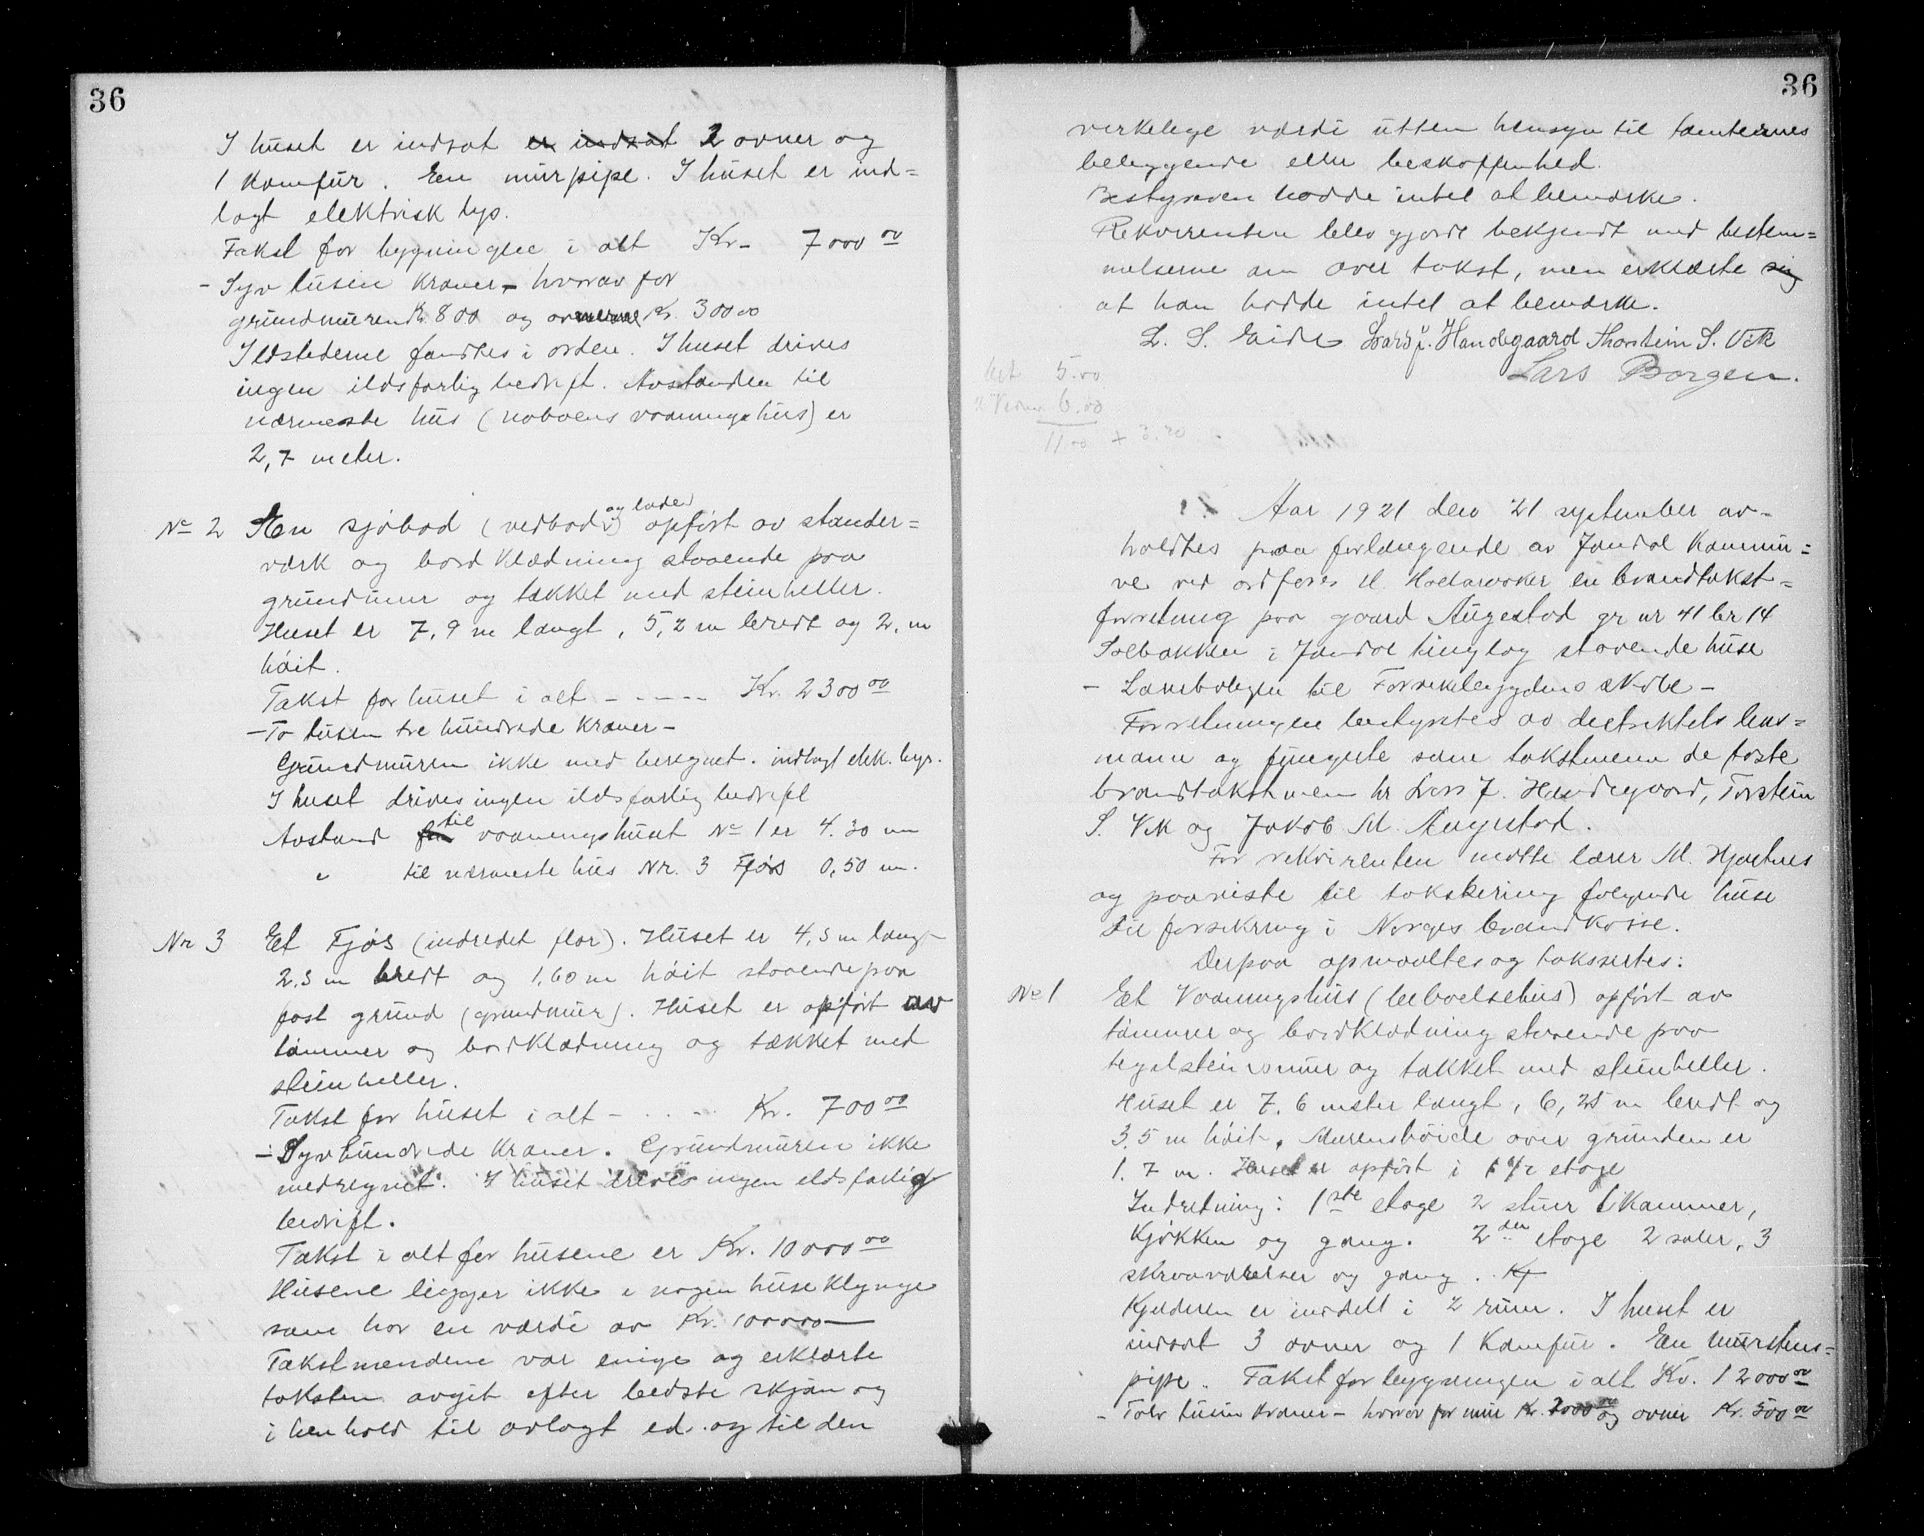 36
I huset er indsat er indsat 2 ovner og
1 Komfur. En mürpipe. I huset er ind=
lagt elektrisk lys.
Takst for bygningen i alt Kr - 7000 00
- Syv tusin Kroner - hvorav for
grundmuren Kr. 800 og ovnerne Kr. 300 00
Ildstederne fandtes i orden. I huset drives
ingen ildsfarlig bedrift. Avstanden til
nærmeste hus (naboens vaaningshus) er
2,7 meter.
No 2 En sjøbod (vedbod og lade) opført av stander=
værk og bordklædning staaende paa
grundmur og tækket med steinheller.
Huset er 7,9 m langt, 5,2 m bredt og 2, m
høit.
Takst for huset i alt - - - - - Kr. 2300 00
- To tusen tre hundrede Kroner -
Grundmuren ikke med beregnet. indlagt elek. lys.
I huset drives ingen ildsfarlig bedrift
Avstand fra til vaaningshuset No 1 er 4.30 m
" til nærmeste hus Nr. 3 Fjøs 0,50 m.
Nr 3 Et Fjøs (indredet flor). Huset er 4,5 m langt
2.5 m bredt og 1,60 m høit staaende paa
fast grund (grundmur). Huset er opført av
tømmer og bordklædning og tækket med
steinheller.
Takst for huset i alt - . . - - Kr. 700 00
- Syvhundrede Kroner. Grundmuren ikke
medregnet. I huset drives ingen ildsfarlig
bedrift.
Takst i alt for husene er Kr. 10000 00
Husene ligger ikke i nogen huseklynge
som har en værdi av Kr. 100000 -
Takstmændene var enige og erklærte
taksten avgit efter bedste skjøn og
i henhold til avlagt ed. og til den
36
verkelege værdi utten hensyn til tomternes
beliggende eller beskaffenhed.
Bestyreren hadde intet at bemærke.
Rekvirenten blev gjordt bekjendt med bestem=
melserne om over takst, men erklærte sig
at han hadde intet at bemærke.
L. S. Eide Lars J. Handegaard Thorstein S. Vik
Lars Borgen.
5.00
6.00
11 00 + 3.20
Aar 1921 den 21 september av-
holdtes paa forlangende av Jondal Kommu=
ne ved ordfører H. en brandtakst=
forretning paa gaard Augestad gr nr 41 br 14
Solbakken i Jondal tinglag staaende huse
- Lærerboligen til skole -
Forretningen bestyrtes av distriktets lens=
mann og fungerte som takstmenn de faste
brandtakstmen hr Lars J. Handegaard, Torstein
S. Vik og Jakob M. Augestad.
For rekvirenten møtte lærer M. Hjartnes
og paaviste til taksering følgende huse
til forsikring i Norges brandkasse.
Derpaa opmaaltes og taksertes:
No 1 Et Vaaningshus (beboelsehus) opført av
tømmer og bordklædning staaende paa
tegelsteinsmur og tækket med steinheller.
Huset er 7,6 meter langt, 6,25 m bredt og
3,5 m høit. Murenshøide over grunden er
1.7 m. Huset er opført i 1 1/2 etage
Indretning: 1ste etage 2 stuer 1 Kammer,
Kjøkken og gang. 2den etage 2 saler, 3
skraaværelser og gang. Kj
Kjelderen er inddelt i 2 rum. I huset er
indsat 3 ovner og 1 Komfur. En murstens=
pipe. Takst for bygningen i alt Kr. 12000 00
- Tolv tusin Kroner - hvorav for mur Kr. 2000 00 og ovner Kr. 500 00